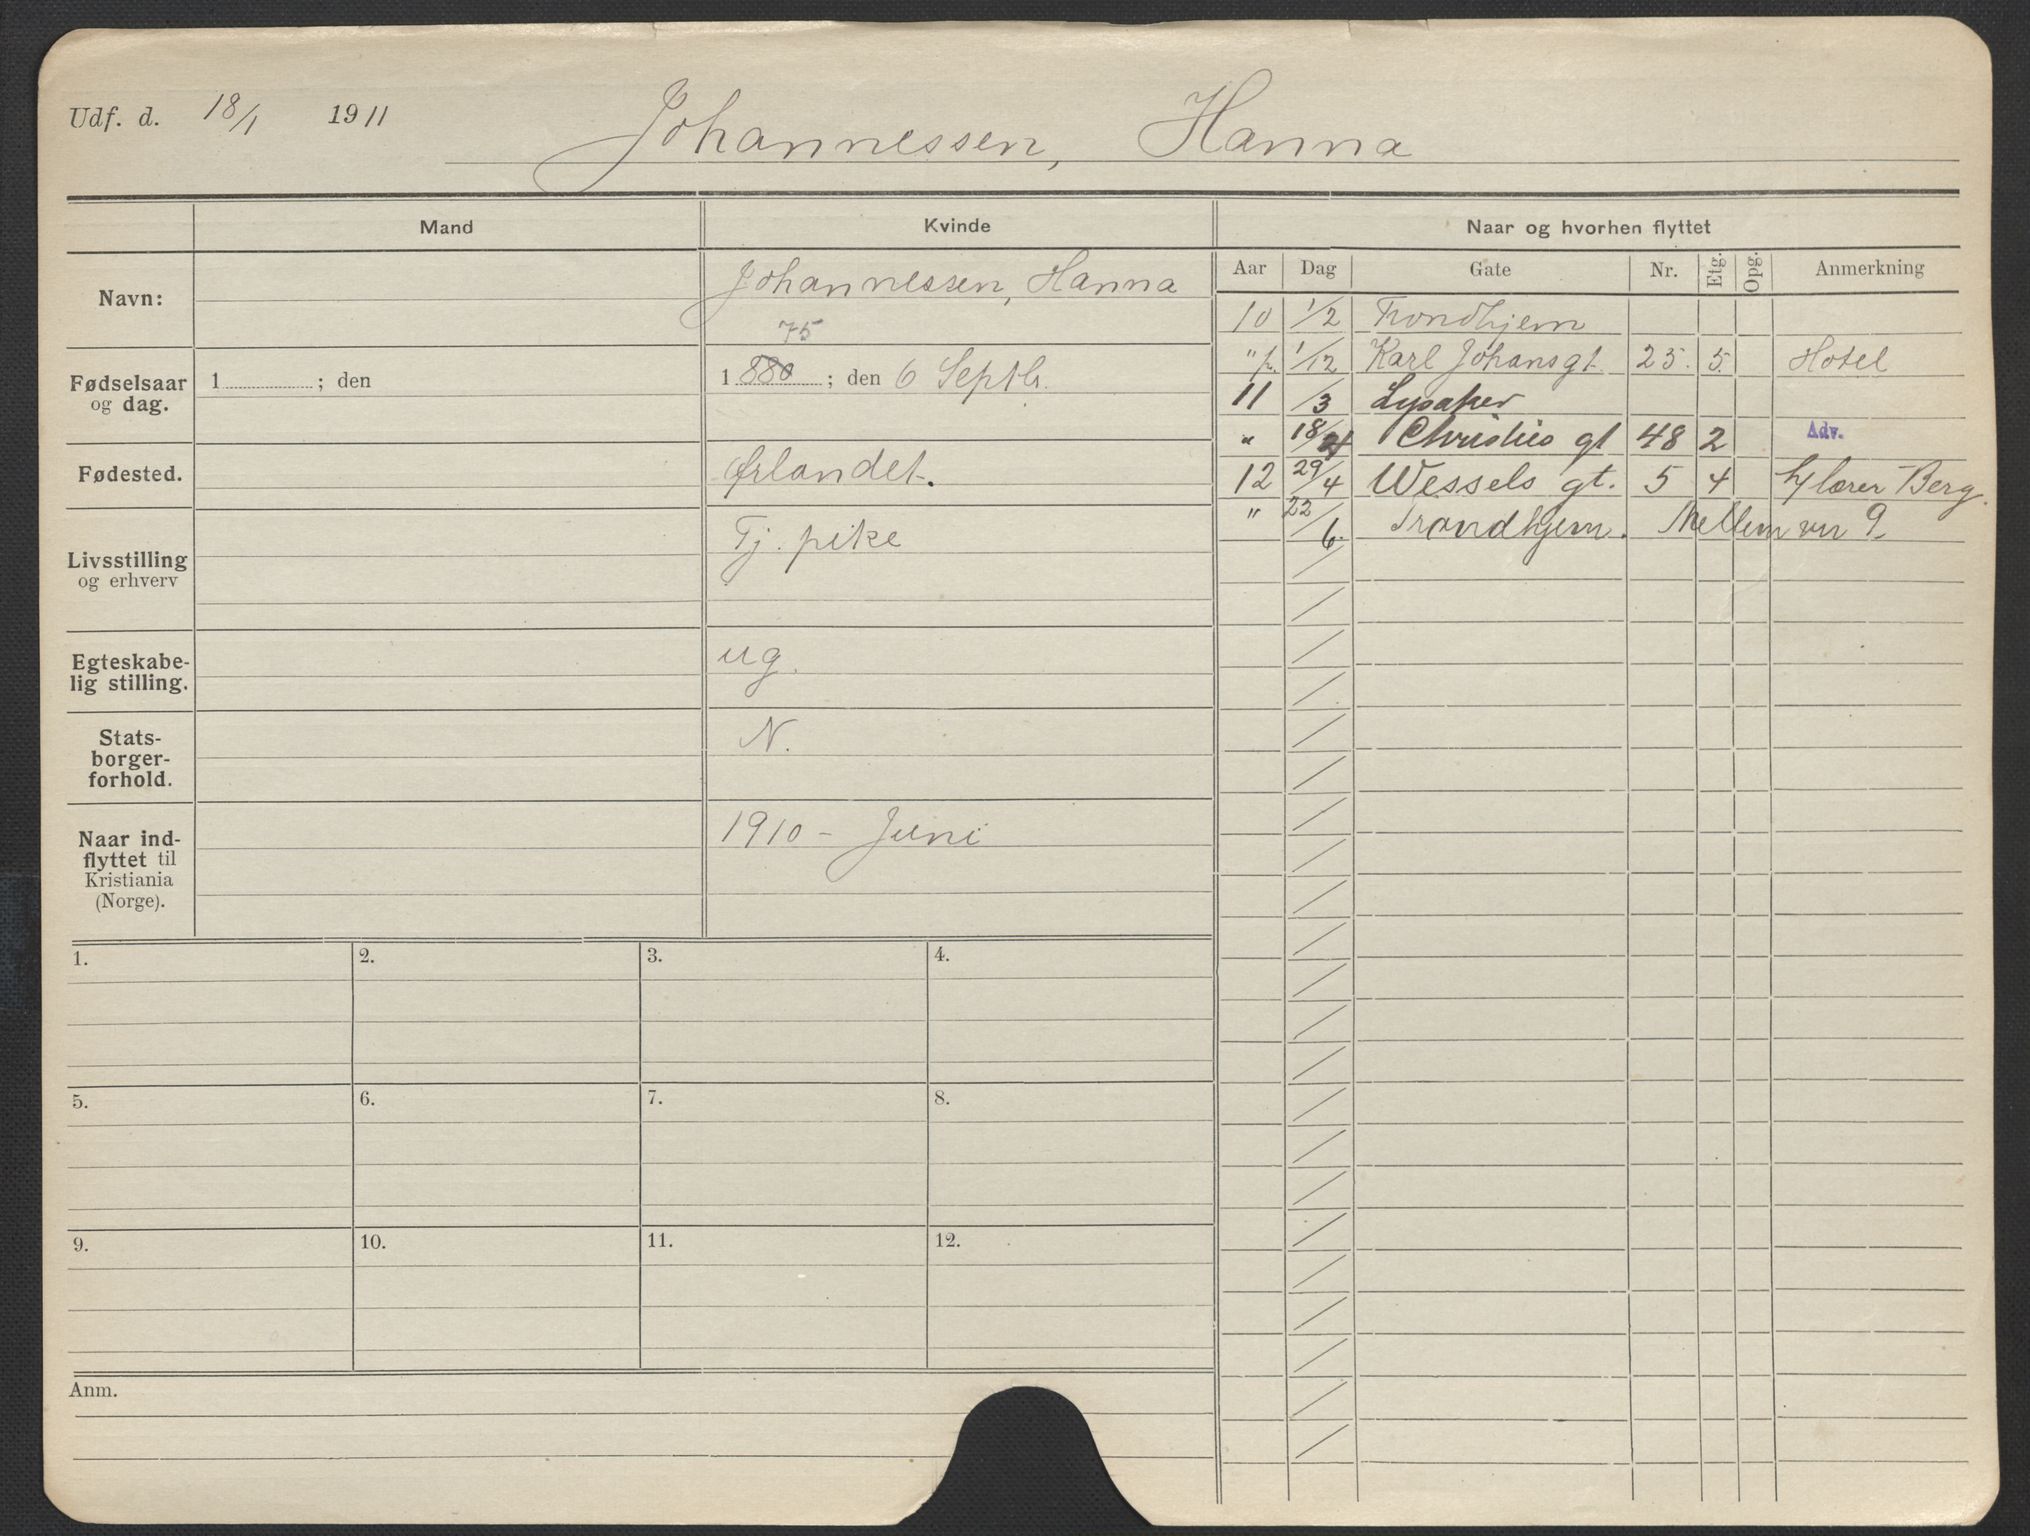 Udf. d. 18/1 1911
Johannessen, Hanna
Mand Kvinde Naar og hvorhen flyttet
Navn: Johannessen, Hanna
75
Fødselsaar og dag. 1 ; den 1880 ; den 6 Septbr.
Fødested. Ørlandet.
Livsstilling og erhverv Tj. pike
Egteskabe-
lig stilling. ug.
Stats-
borger-
forhold. N.
Naar ind-
flyttet til
Kristiania
(Norge). 1910 - Juni
Aar Dag Gate Nr. Etg. Opg. Anmerkning
10 1/2 Trondhjem
" p. 1/12 Karl Johansgt. 25. 5. Hotel
11 /3 Lysaker
" 18/4 Christies gt 48 2 Adv.
12 29/4 Wessels gt. 5 4 Glarer Berg.
" 22/6. Trondhjem. Mellem vn 9
1. 2. 3. 4.
5. 6. 7. 8.
9. 10. 11. 12.
Anm.